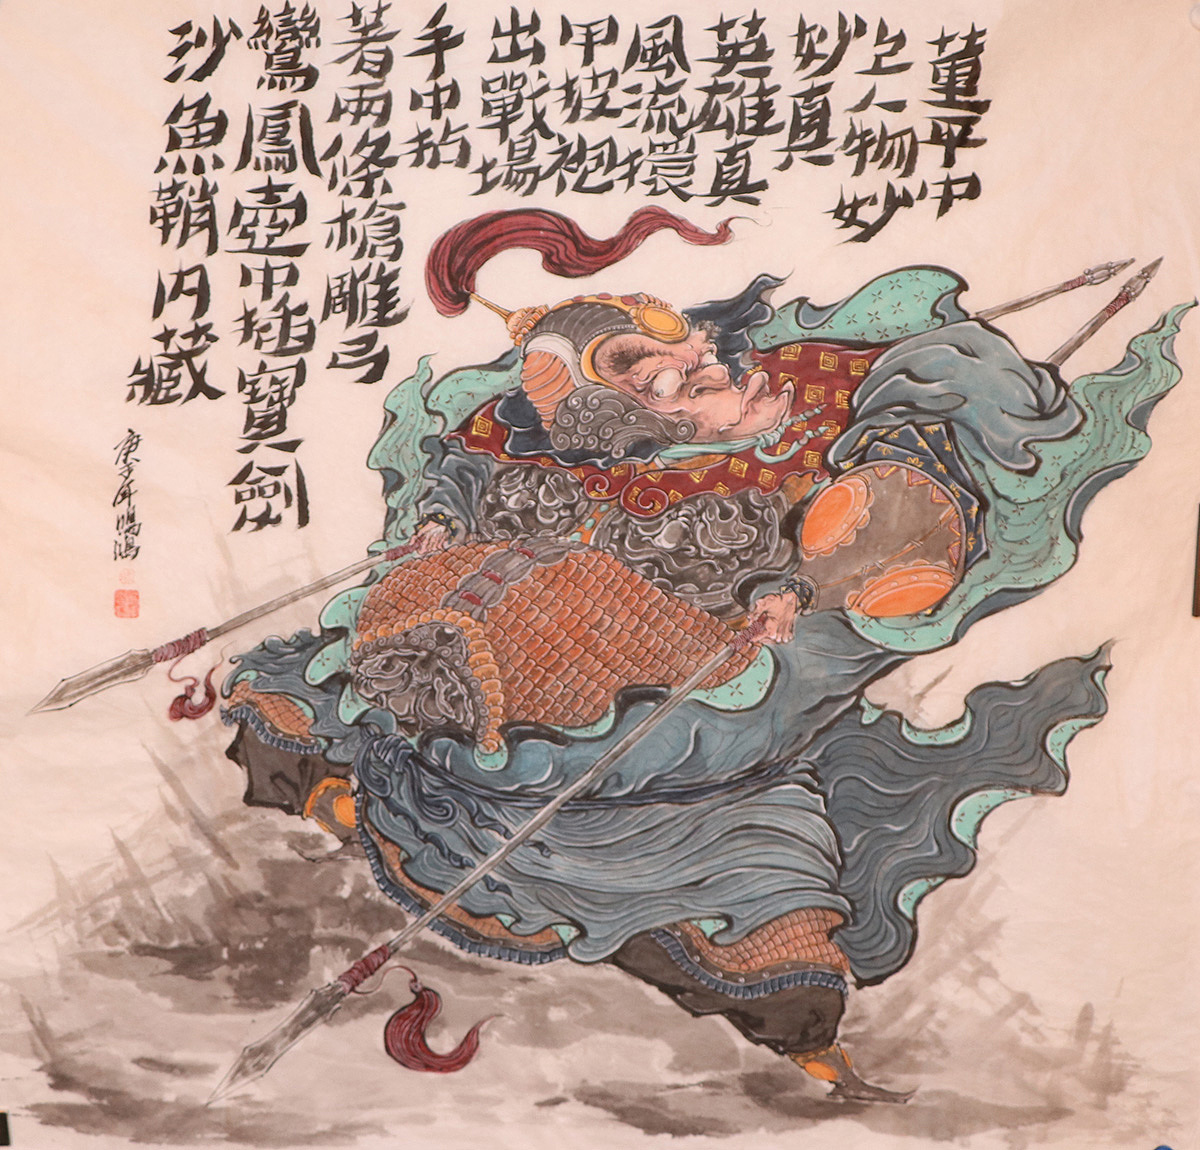 董平中
上人物妙
妙真
英雄真
風流擐
甲披袍
出戰場
手中拈
著兩條槍雕弓
鸞鳳壺中插寶劍
沙魚鞘内藏
庚子年鴻鴻